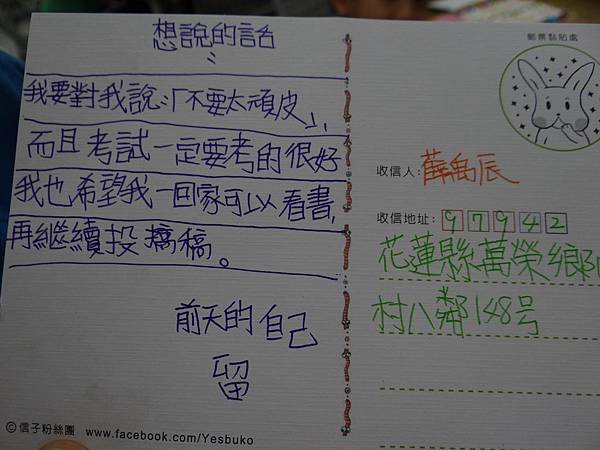 想說的話
我要對我說:「不要太頑皮」,
而且考試一定要考的很好
我也希望我一回家可以看書,
再繼續投搞稿。
前天的自己
留
©信子粉絲團 www.facebook.com/Yesbuko
郵票黏貼處
收信人: 薛禹辰
收信地址: 97942
花蓮縣萬榮鄉
村八鄰148号